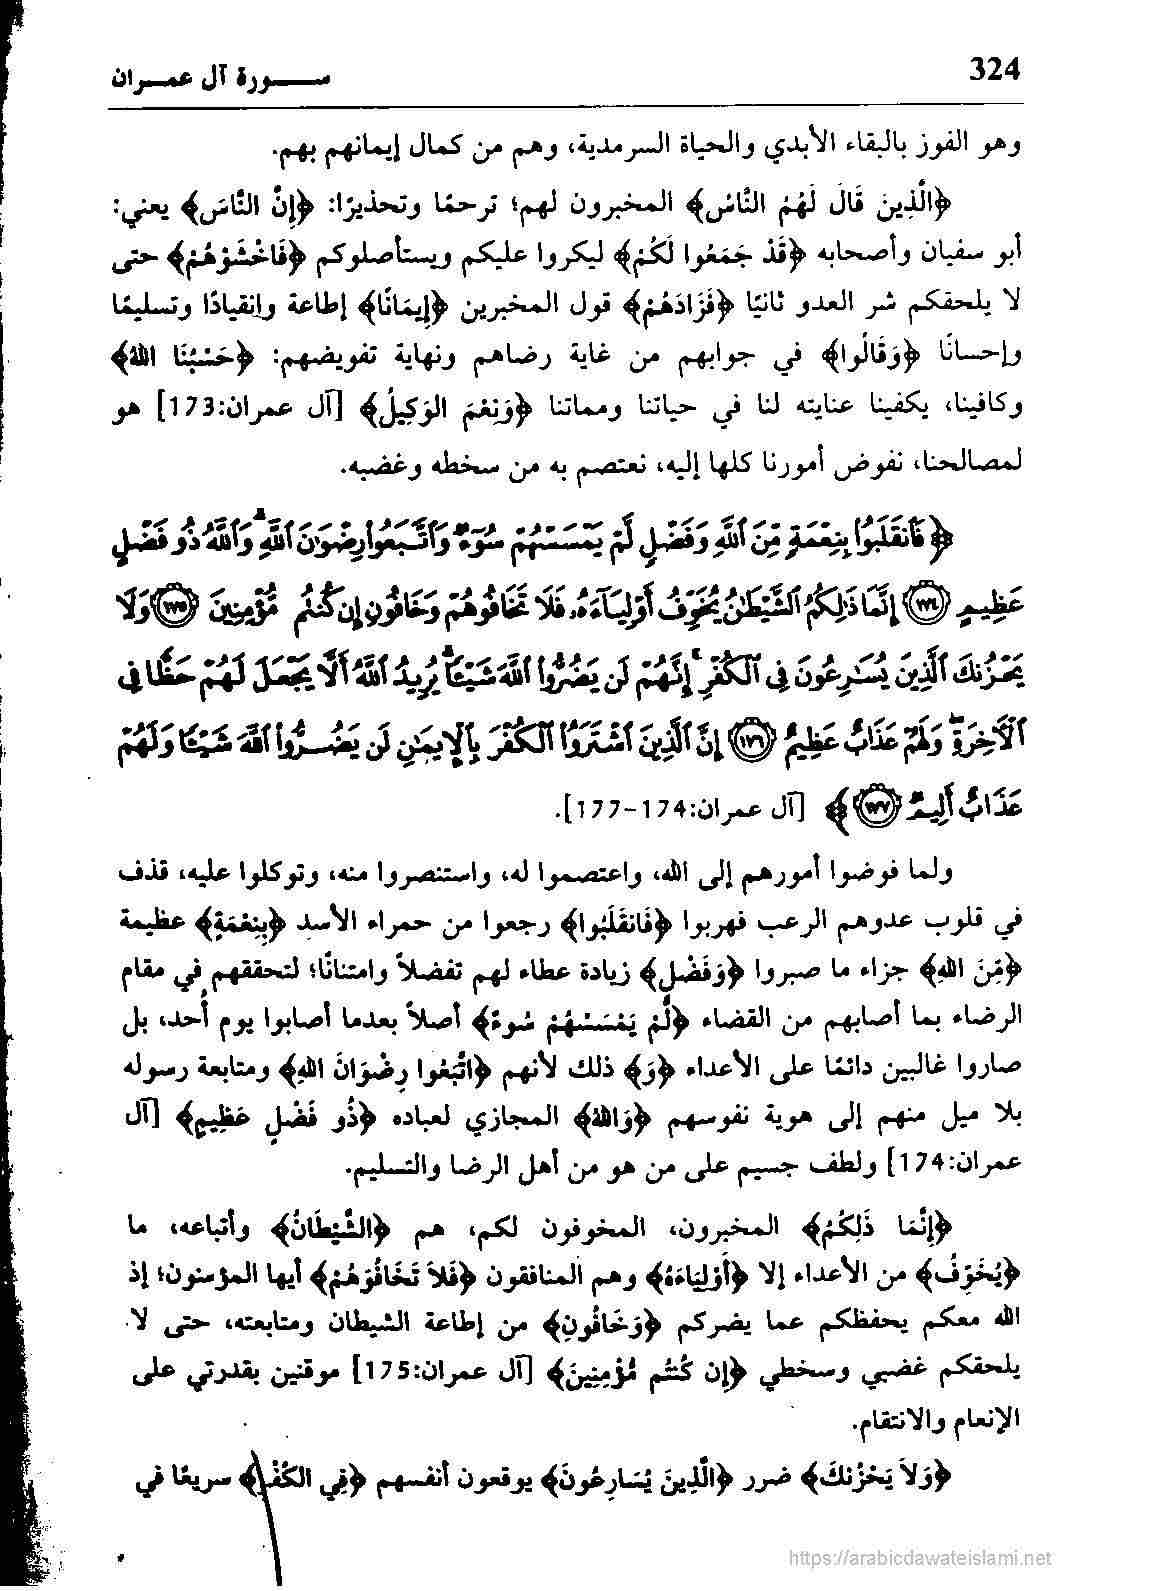 324
ســـــورة آل عمـــران
وهو الفوز بالبقاء الأبدي والحياة السرمدية، وهم من كمال إيمانهم بهم.
﴿الَّذِينَ قَالَ لَهُمُ النَّاسُ﴾ المخبرون لهم؛ ترحمًا وتحذيرًا: ﴿إِنَّ النَّاسَ﴾ يعني:
أبو سفيان وأصحابه ﴿قَدْ جَمَعُوا لَكُمْ﴾ ليكروا عليكم ويستأصلوكم ﴿فَاخْشَوْهُمْ﴾ حتى
لا يلحقكم شر العدو ثانيًا ﴿فَزَادَهُمْ﴾ قول المخبرين ﴿إِيمَانًا﴾ إطاعة وإنقيادًا وتسليمًا
وإحسانًا ﴿وَقَالُوا﴾ في جوابهم من غاية رضاهم ونهاية تفويضهم: ﴿حَسْبُنَا اللهُ﴾
وكافينا، يكفينا عنايته لنا في حياتنا ومماتنا ﴿وَنِعْمَ الوَكِيلُ﴾ [آل عمران:173] هو
لمصالحنا، نفوض أمورنا كلها إليه، نعتصم به من سخطه وغضبه.
﴿فَٱنقَلَبُوا۟ بِنِعْمَةٍ مِّنَ ٱللَّهِ وَفَضْلٍ لَّمْ يَمْسَسْهُمْ سُوٓءٌ وَٱتَّبَعُوا۟ رِضْوَٰنَ ٱللَّهِ ۗ وَٱللَّهُ ذُو فَضْلٍ
عَظِيمٍ ١٧٤ إِنَّمَا ذَٰلِكُمُ ٱلشَّيْطَٰنُ يُخَوِّفُ أَوْلِيَآءَهُۥ فَلَا تَخَافُوهُمْ وَخَافُونِ إِن كُنتُم مُّؤْمِنِينَ ١٧٥ وَلَا
يَحْزُنكَ ٱلَّذِينَ يُسَٰرِعُونَ فِى ٱلْكُفْرِ ۚ إِنَّهُمْ لَن يَضُرُّوا۟ ٱللَّهَ شَيْـًٔا ۗ يُرِيدُ ٱللَّهُ أَلَّا يَجْعَلَ لَهُمْ حَظًّا فِى
ٱلْـَٔاخِرَةِ ۖ وَلَهُمْ عَذَابٌ عَظِيمٌ ١٧٦ إِنَّ ٱلَّذِينَ ٱشْتَرَوُا۟ ٱلْكُفْرَ بِٱلْإِيمَٰنِ لَن يَضُرُّوا۟ ٱللَّهَ شَيْـًٔا وَلَهُمْ
عَذَابٌ أَلِيمٌ ١٧٧﴾ [آل عمران:174-177].
ولما فوضوا أمورهم إلى الله، واعتصموا له، واستنصروا منه، وتوكلوا عليه، قذف
في قلوب عدوهم الرعب فهربوا ﴿فَانقَلَبُوا﴾ رجعوا من حمراء الأسد ﴿بِنِعْمَةٍ﴾ عظيمة
﴿مِّنَ اللهِ﴾ جزاء ما صبروا ﴿وَفَضْلٍ﴾ زيادة عطاء لهم تفضلاً وامتنانًا؛ لتحققهم في مقام
الرضاء بما أصابهم من القضاء ﴿لَّمْ يَمْسَسْهُمْ سُوءٌ﴾ أصلاً بعدما أصابوا يوم أُحد، بل
صاروا غالبين دائمًا على الأعداء ﴿وَ﴾ ذلك لأنهم ﴿اتَّبَعُوا رِضْوَانَ اللهِ﴾ ومتابعة رسوله
بلا ميل منهم إلى هوية نفوسهم ﴿وَاللهُ﴾ المجازي لعباده ﴿ذُو فَضْلٍ عَظِيمٍ﴾ [آل
عمران:174] ولطف جسيم على من هو من أهل الرضا والتسليم.
﴿إِنَّمَا ذَلِكُمُ﴾ المخبرون، المخوفون لكم، هم ﴿الشَّيْطَانُ﴾ وأتباعه، ما
﴿يُخَوِّفُ﴾ من الأعداء إلا ﴿أَوْلِيَاءَهُ﴾ وهم المنافقون ﴿فَلاَ تَخَافُوَهُمْ﴾ أيها المؤمنون؛ إذ
الله معكم يحفظكم عما يضركم ﴿وَخَافُونِ﴾ من إطاعة الشيطان ومتابعته، حتى لا
يلحقكم غضبي وسخطي ﴿إِن كُنتُم مُّؤْمِنِينَ﴾ [آل عمران:175] موقنين بقدرتي على
الإنعام والانتقام.
﴿وَلاَ يَحْزُنكَ﴾ ضرر ﴿الَّذِينَ يُسَارِعُونَ﴾ يوقعون أنفسهم ﴿فِي الكُفْرِ﴾ سريعًا في
https://arabicdawateislami.net